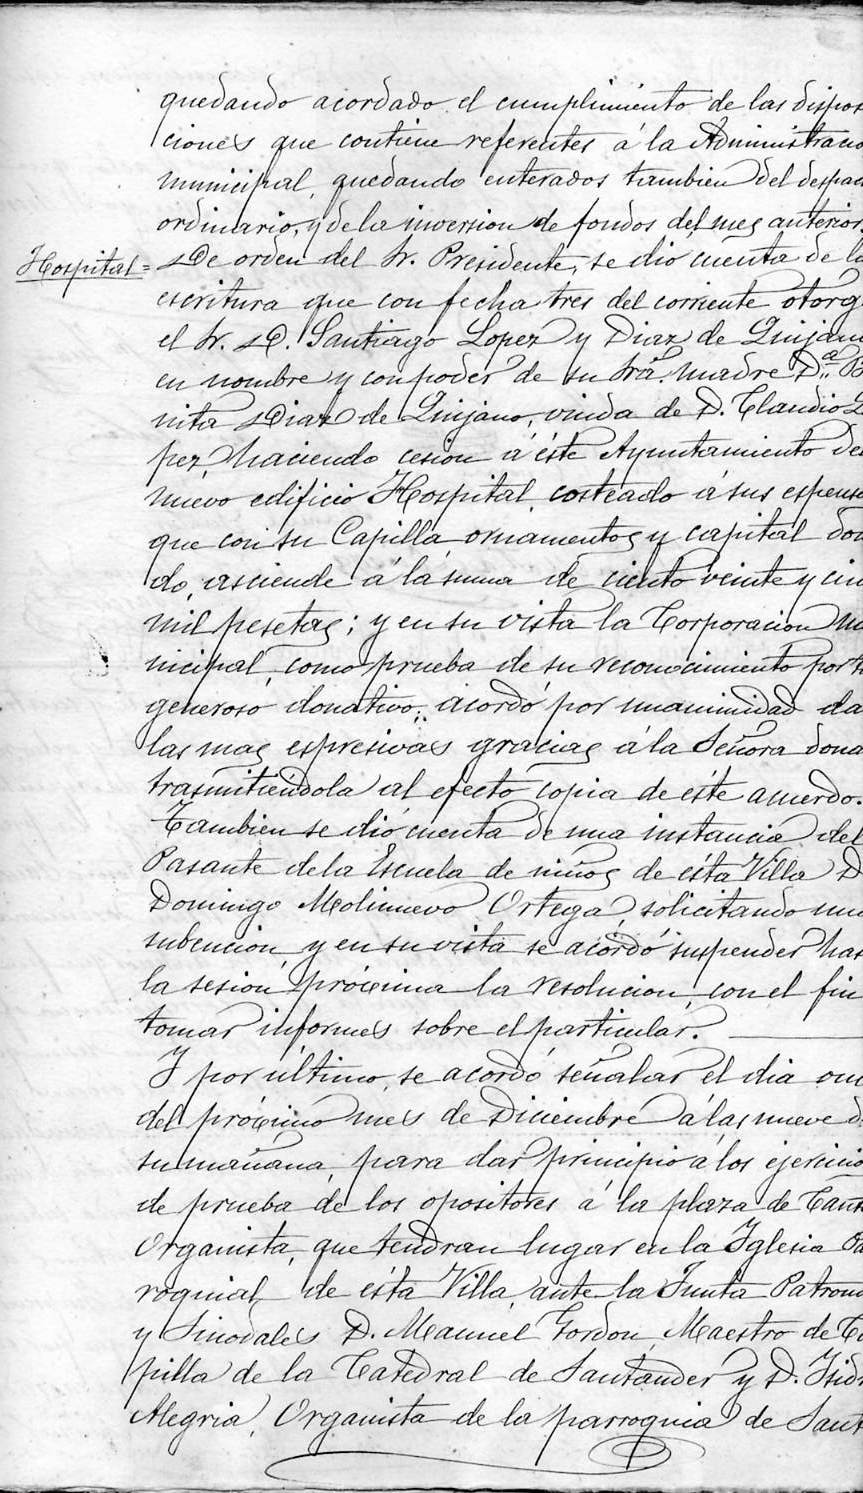 quedando acordado el cumplimiento de las dispos
ciones que contiene referentes á la Administrac
municipal, quedando enterados tambien del despac
ordinario, y de la inversion de fondos del mes anterior.
Hospital = De orden del Sr. Presidente, se dió cuenta de la
escritura que con fecha tres del corriente otorg
el Sr. D. Santiago Lopez y Diaz de Quijano
en nombre y con poder de su Srâ. madre D.ª B
nita Diaz de Quijano, viuda de D. Claudio L
pez, haciendo cesion á éste Ayuntamiento de
nuevo edificio Hospital, costeado á sus espensa
que con su Capilla, ornamentos y capital don
do, asciende á la suma de ciento veinte y cin
mil pesetas; y en su vista la Corporacion mu
nicipal, como prueba de su reconocimiento por t
generoso donativo, acordó por unanimidad da
las mas espresivas gracias á la Señora dona
trasmitiéndola al efecto copia de éste acuerdo.
Tambien se dió cuenta de una instancia del
Pasante de la Escuela de niños de ésta Villa D
Domingo Molinuevo Ortega, solicitando una
subencion, y en su vista se acordó suspender has
la sesion próxima la resolucion, con el fin
tomar informes sobre el particular.
Y por último, se acordó señalar el dia onc
del próximo mes de Diciembre á las nueve d
su mañana, para dar principio á los ejercicio
de prueba de los opositores á la plaza de Cant
Organista, que tendran lugar en la Iglesia Pa
rroquial, de ésta Villa, ante la Junta Patrona
y Sinodales D. Manuel Gordon, Maestro de Ca
pilla de la Catedral de Santander y D. Isid
Alegria, Organista de la parroquia de Sant